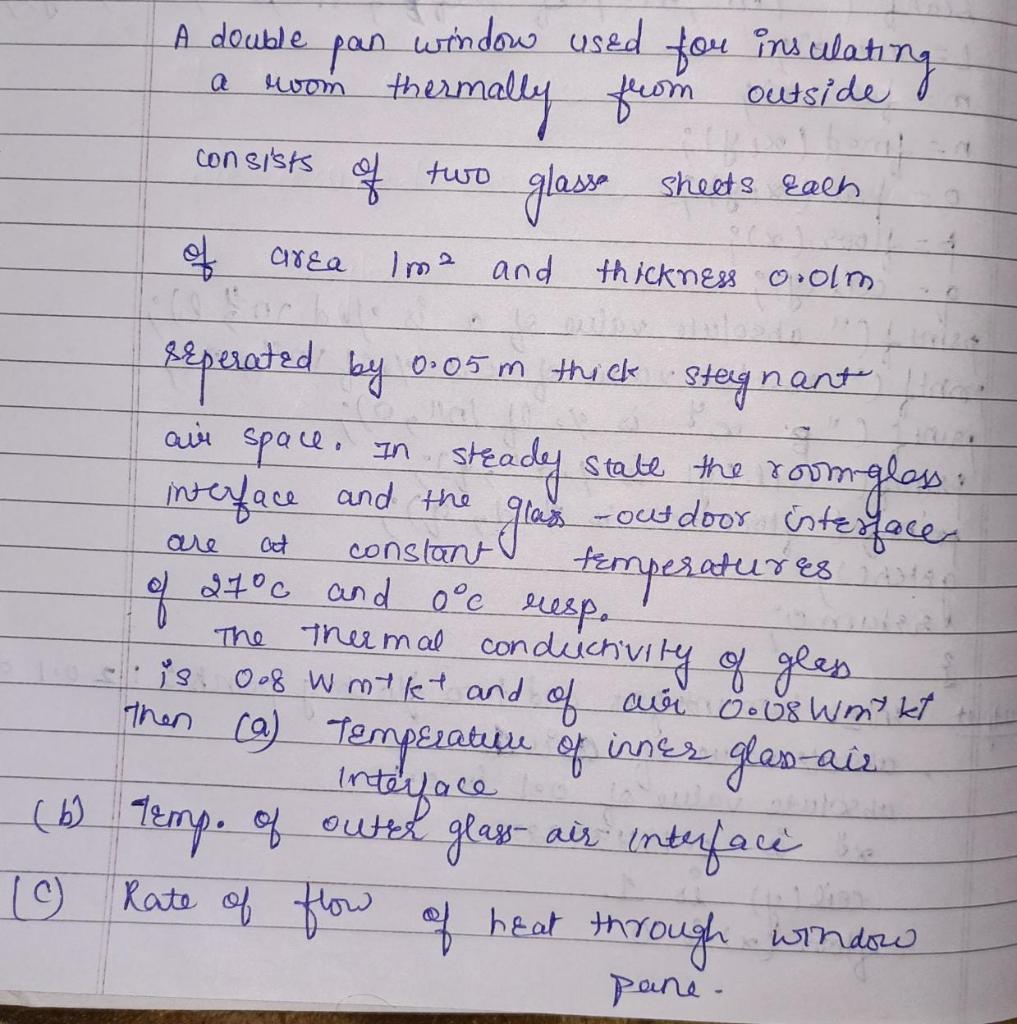 A double pan window used for insulating
a room thermally from outside
consists of two glass sheets each
of area 1m² and thickness 0.01m
seperated by 0.05m thick stagnant
air space. In steady state the room-glass
interface and the glass-outdoor interface
are at constant temperatures
of 27°C and 0°C resp.
The thermal conductivity of glass
is 0.8 Wm⁻¹k⁻¹ and of air 0.08 Wm⁻¹k⁻¹
Then (a) Temperature of inner glass-air
Interface
(b) Temp. of outer glass-air interface
(c) Rate of flow of heat through window
pane.